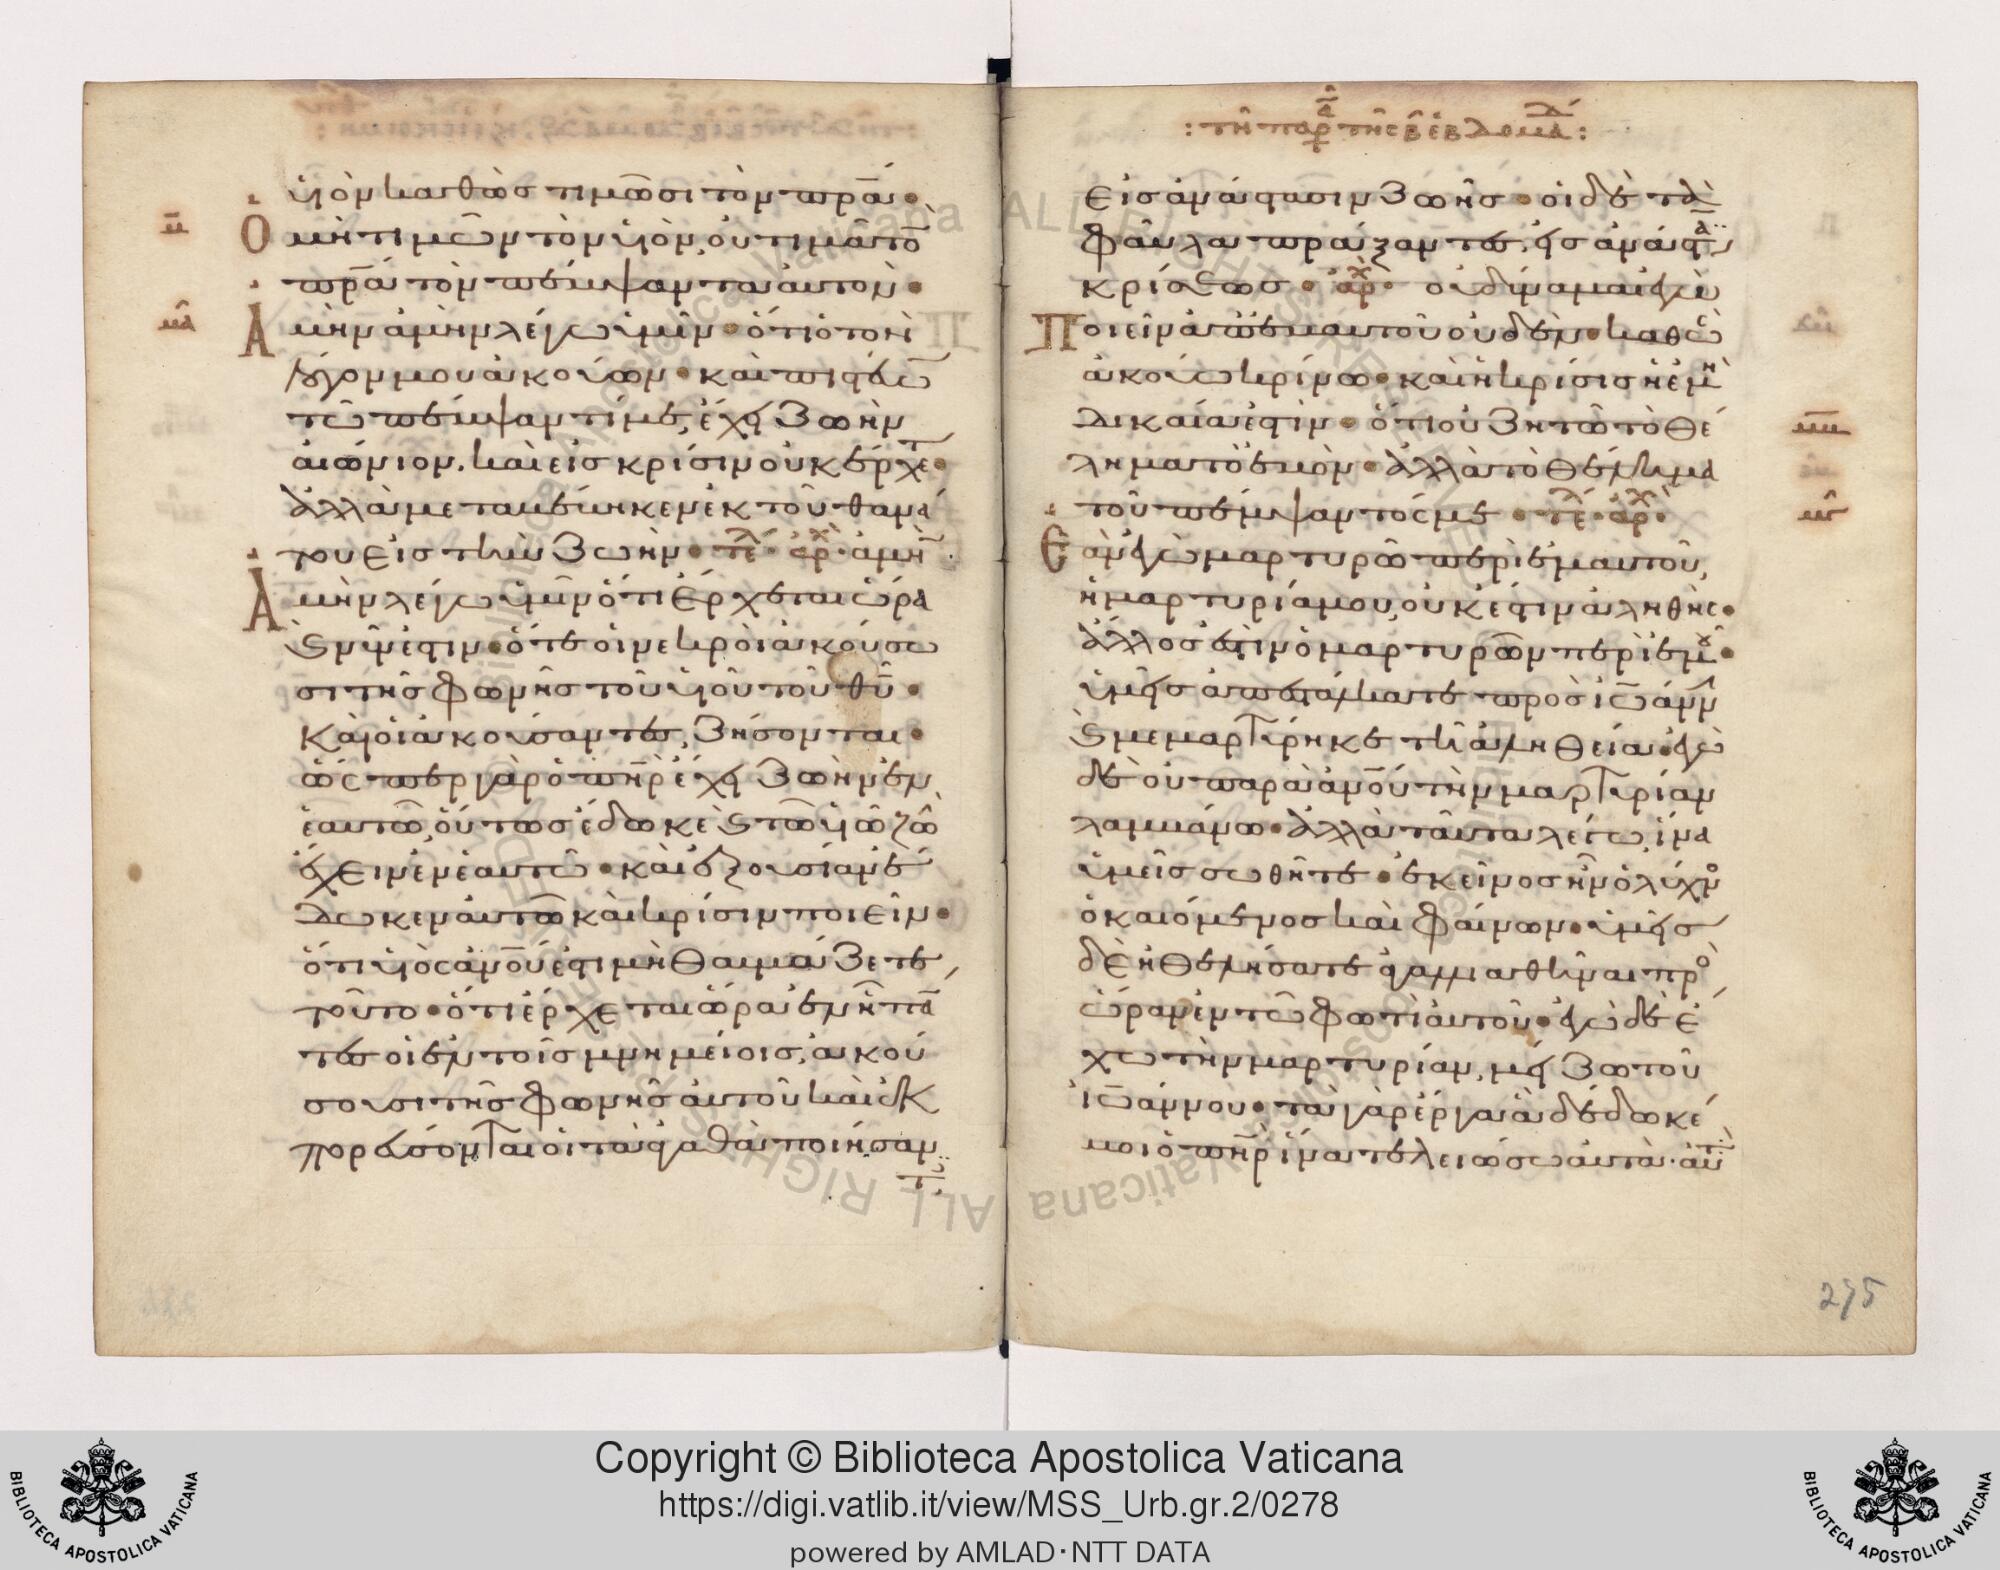 υἱὸν καθὼς τιμῶσι τὸν πρα·
μ̅
Ὁ μὴ τιμῶν τὸν υἱὸν, οὐ τιμᾶ το
πρα τὸν πέμψαντα αὐτον·
μα
Ἀμὴν ἀμὴν λέγω ὑμῖν· ὅτι ὁ τὸν
λόγον μου ἀκούων· καὶ πιστεύω
τῶ πέμψαντί με, ἔχει ζωὴν
αἰώνιον. καὶ εἰς κρίσιν οὐκ ἔρχεται·
ἀλλὰ μεταβέβηκεν ἐκ τοῦ θανά
του εἰς τὴν ζωὴν· τέλ· ἀρχ· ἀμὴν
Ἀμὴν λέγω ὑμῖν ὅτι ἔρχεται ὥρα
καὶ νῦν ἐστιν· ὅτε οἱ νεκροὶ ἀκούσω
σι τῆς φωνῆς τοῦ υἱοῦ τοῦ θυ·
Καὶ οἱ ἀκούσαντες, ζήσονται·
ὥσπερ γὰρ ὁ πηρ ἔχει ζωὴν ἐν
ἑαυτῶ, οὕτως ἔδωκε καὶ τῶ υἱῶ ζωὴν
ἔχειν ἐν ἑαυτῶ· καὶ ἐξουσίαν ἔ
δωκεν αὐτῶ καὶ κρίσιν ποιεῖν·
ὅτι υἱὸς ανου ἐστι μὴ θαυμάζετε
τοῦτο· ὅτι ἔρχεται ὥρα ἐν ἧ πά
τες οἱ ἐν τοῖς μνημείοις, ἀκού
σουσι τῆς φωνῆς αὐτοῦ καὶ ἐκ
πορεύσονται οἱ τὰ ἀγαθὰ ποιήσαν
τες
: τῆ παρ τῆς β ἑβδομάδ :
εἰς ἀνάστασιν ζωῆς· οἱ δὲ τὰ
φαῦλα πράξαντες, εἰς ἀνάστασιν
κρίσεως· ἀρχ· οὐ δύναμαι ἐγὼ
Ποιεῖν ἀπ' ἐμαυτοῦ οὐδὲν· καθὼς
ἀκούω κρίνω· καὶ ἡ κρίσις ἡ ἐμὴ
δικαία ἐστὶν· ὅτι οὐ ζητῶ τὸ θέ
λημα τὸ ἐμὸν· ἀλλὰ τὸ θέλημα
τοῦ πέμψαντός με· τέλ· ἀρχ·
Ἐὰν ἐγὼ μαρτυρῶ περὶ ἐμαυτοῦ,
ἡ μαρτυρία μου, οὐκ ἔστιν ἀληθὴς·
ἄλλος ἐστὶν ὁ μαρτυρῶν περὶ ἐμοῦ·
ὑμεῖς ἀπεστάλκατε πρὸς ἰωάνν
καὶ μεμαρτύρηκε τῆ ἀληθεία· ἐγὼ
δὲ οὐ παρὰ ανου τὴν μαρτυρίαν
λαμβάνω· ἀλλὰ ταῦτα λέγω, ἵνα
ὑμεῖς σωθῆτε· ἐκεῖνος ἦν ὁ λύχνος
ὁ καιόμενος καὶ φαίνων· ὑμεῖς
δὲ ἠθελήσατε ἀγαλλιαθῆναι πρὸ
ὥραν ἐν τῶ φωτὶ αὐτοῦ· ἐγὼ δὲ ἔ
χω τὴν μαρτυρίαν, μείζω τοῦ
ἰωάννου· τὰ γὰρ ἔργα ἃ δέδωκέ
μοι ὁ πηρ ἵνα τελειώσω αὐτὰ· αὐτὰ
295
Copyright © Biblioteca Apostolica Vaticana
https://digi.vatlib.it/view/MSS_Urb.gr.2/0278
powered by AMLAD·NTT DATA
BIBLIOTECA APOSTOLICA VATICANA
BIBLIOTECA APOSTOLICA VATICANA